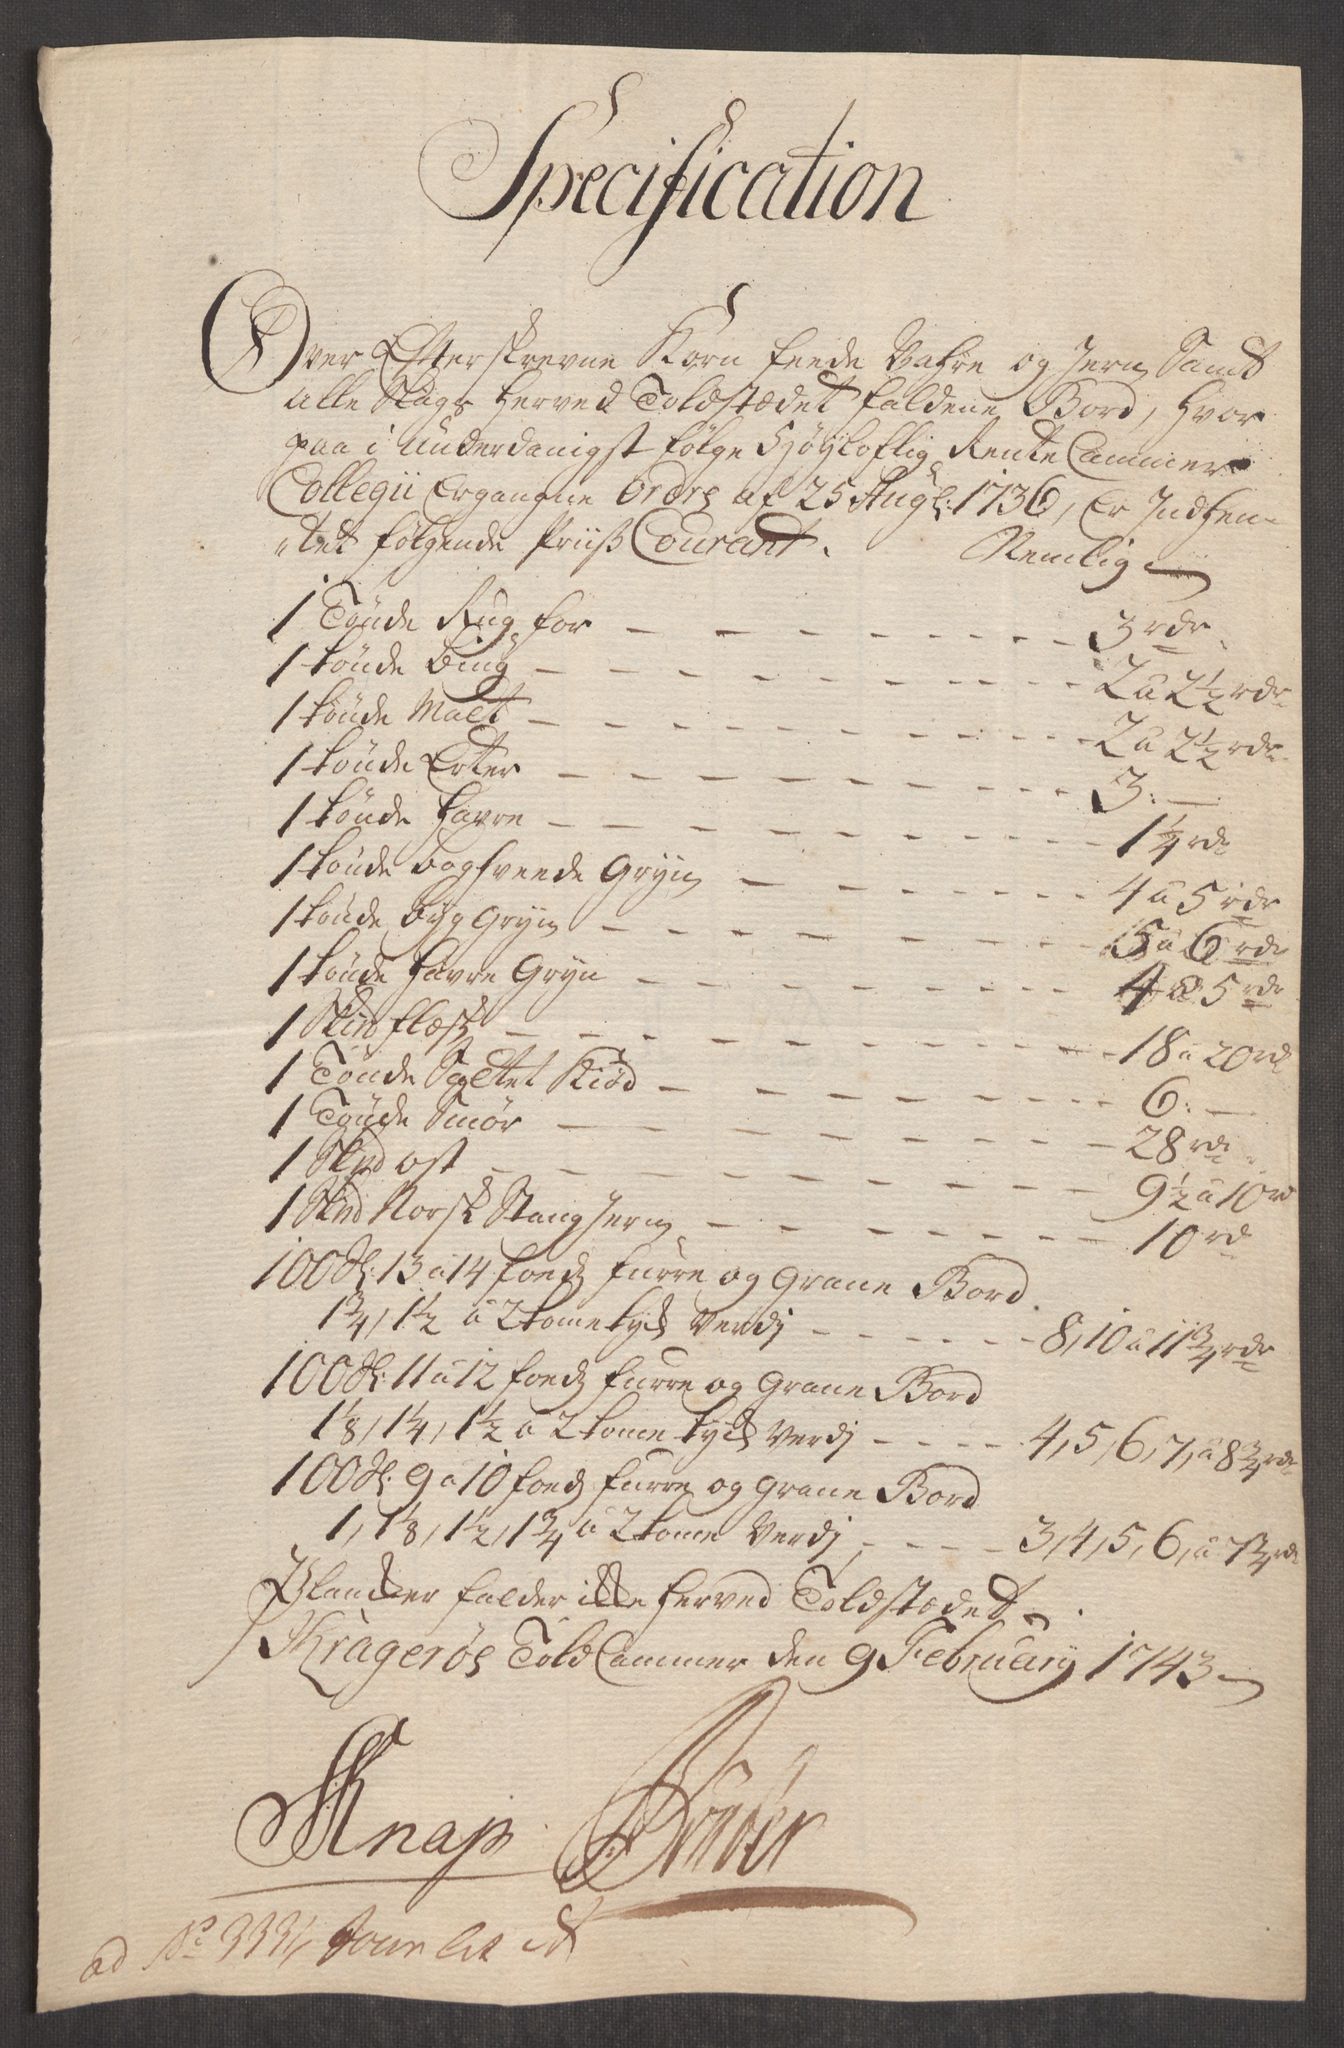 Specification
Over Efterskrevne Korn feede Vahre og Jern, Samt
alle Slags herved Toldstædet faldene Bord, hvor
paa i underdanigst følge Høyloflig Rente Cammer
Collegii Ergangne Ordre af 25 Aug: 1736, Er Indhen-
tet følgende Priiß Courant. Nemlig
1 Tønde Rug for - - - 3 rdr
1 tønde biug - - - 2 a 2 1/2 rdr
1 tønde Malt - - - 2 a 2 1/2 rdr
1 tønde Erter - - - 3:—
1 tønde havre - - - 1 1/4 rd
1 tønde boghveede Gryn - - - 4 a 5 rdr
1 tønde byg Gryn - - - 5 a 6 rdr
1 tønde havre Gryn - - - 4 a 5 rdr
1 Sk℔ flesk - - - 18 a 20 rd
1 Tønde Saltet Kiød - - - 6:—
1 Tønde Smør - - - 28 rd
1 Sk℔ ost - - - 9 1/2 a 10 rd
1 Sk℔ Norsk Stang Jern - - - 10 rd
100 st: 13 a 14 foed furre og Grane Bord
1 3/4, 1 1/2 a 2 tome tyck Verdj - - - 8, 10 a 11 3/4 rdr
100 st: 11 a 12 foed furre og Grane Bord
1 1/8, 1 1/4, 1 1/2 a 2 tome tyck Verdj - - - 4, 5, 6, 7, a 8 3/4 rdr
100 st: 9 a 10 foed furre og Grane Bord
1, 1 1/8, 1 1/2, 1 3/4 a 2 tome Verdj - - - 3, 4, 5, 6, a 7 3/4 rdr
Plancker falder icke herved Toldstædet.
Kragerøe Told Cammer den 9 February 1743
Knap
ad No